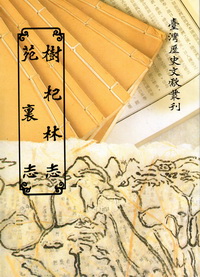 臺灣歷史文獻叢刊
樹杞林志
苑裏志